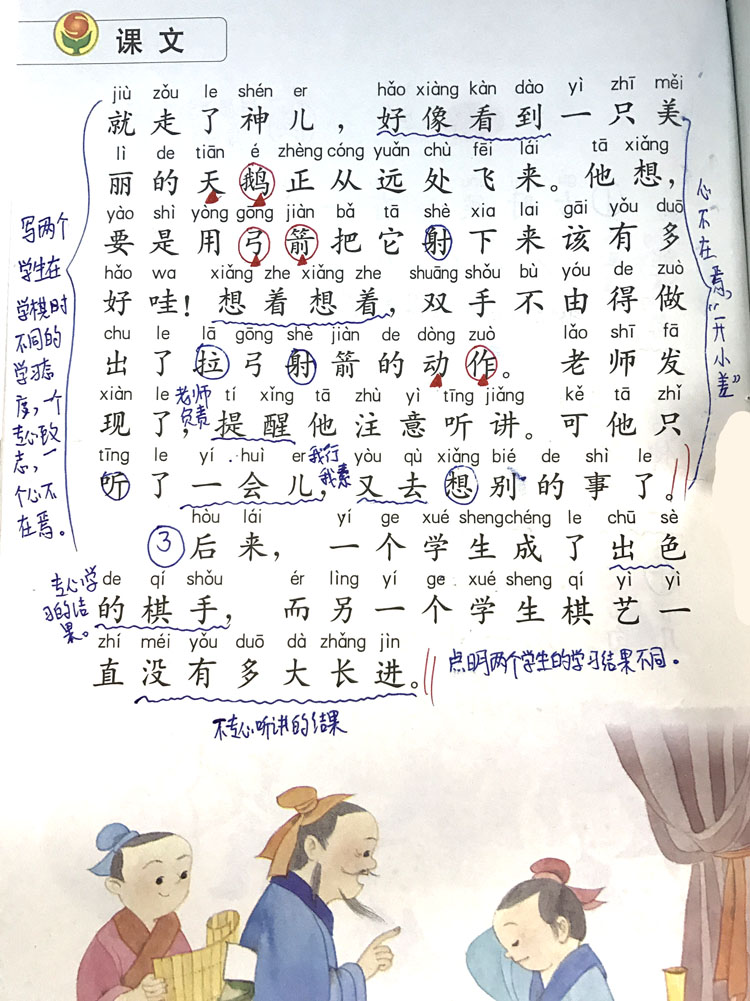 课文
jiù zǒu le shén er hǎo xiàng kàn dào yì zhī měi
就走了神儿，好像看到一只美
lì de tiān é zhèng cóng yuǎn chù fēi lái tā xiǎng
丽的天鹅正从远处飞来。他想，
yào shì yòng gōng jiàn bǎ tā shè xia lai gāi yǒu duō
要是用弓箭把它射下来该有多
hǎo wa xiǎng zhe xiǎng zhe shuāng shǒu bù yóu de zuò
好哇！想着想着，双手不由得做
chu le lā gōng shè jiàn de dòng zuò lǎo shī fā
出了拉弓射箭的动作。老师发
xiàn le tí xǐng tā zhù yì tīng jiǎng kě tā zhǐ
现了，提醒他注意听讲。可他只
tīng le yí huì er yòu qù xiǎng bié de shì le
听了一会儿，又去想别的事了。
hòu lái yí ge xué sheng chéng le chū sè
③后来，一个学生成了出色
de qí shǒu ér lìng yí ge xué sheng qí yì yì
的棋手，而另一个学生棋艺一
zhí méi yǒu duō dà zhǎng jìn
直没有多大长进。
写两个
学生在
学棋时
不同的
学习态
度，一个
专心致
志，一
个心不
在焉。
心不在焉，“开小差”
老师
负责
我行
我素
专心学
习的结
果。
点明两个学生的学习结果不同。
不专心听讲的结果